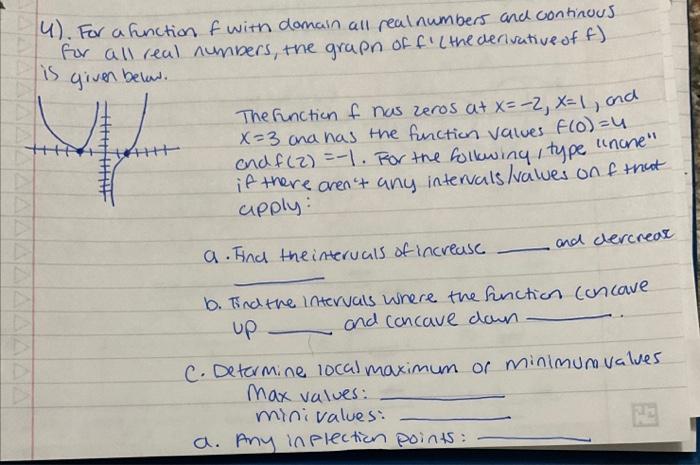 4). For a function f with domain all real numbers and continous
for all real numbers, the graph of f' (the derivative of f)
is given below.
The function f has zeros at x=-2, x=1, and
x=3 and has the function values f(0)=4
and f(2)=-1. For the following, type "none"
if there aren't any intervals/values on f that
apply:
a. Find the intervals of increase ____ and dercreas
____
b. Find the intervals where the function concave
up ____ and concave down ____.
C. Determine local maximum or minimum values
Max values: ____
mini values: ____
d. Any inflection points: ____